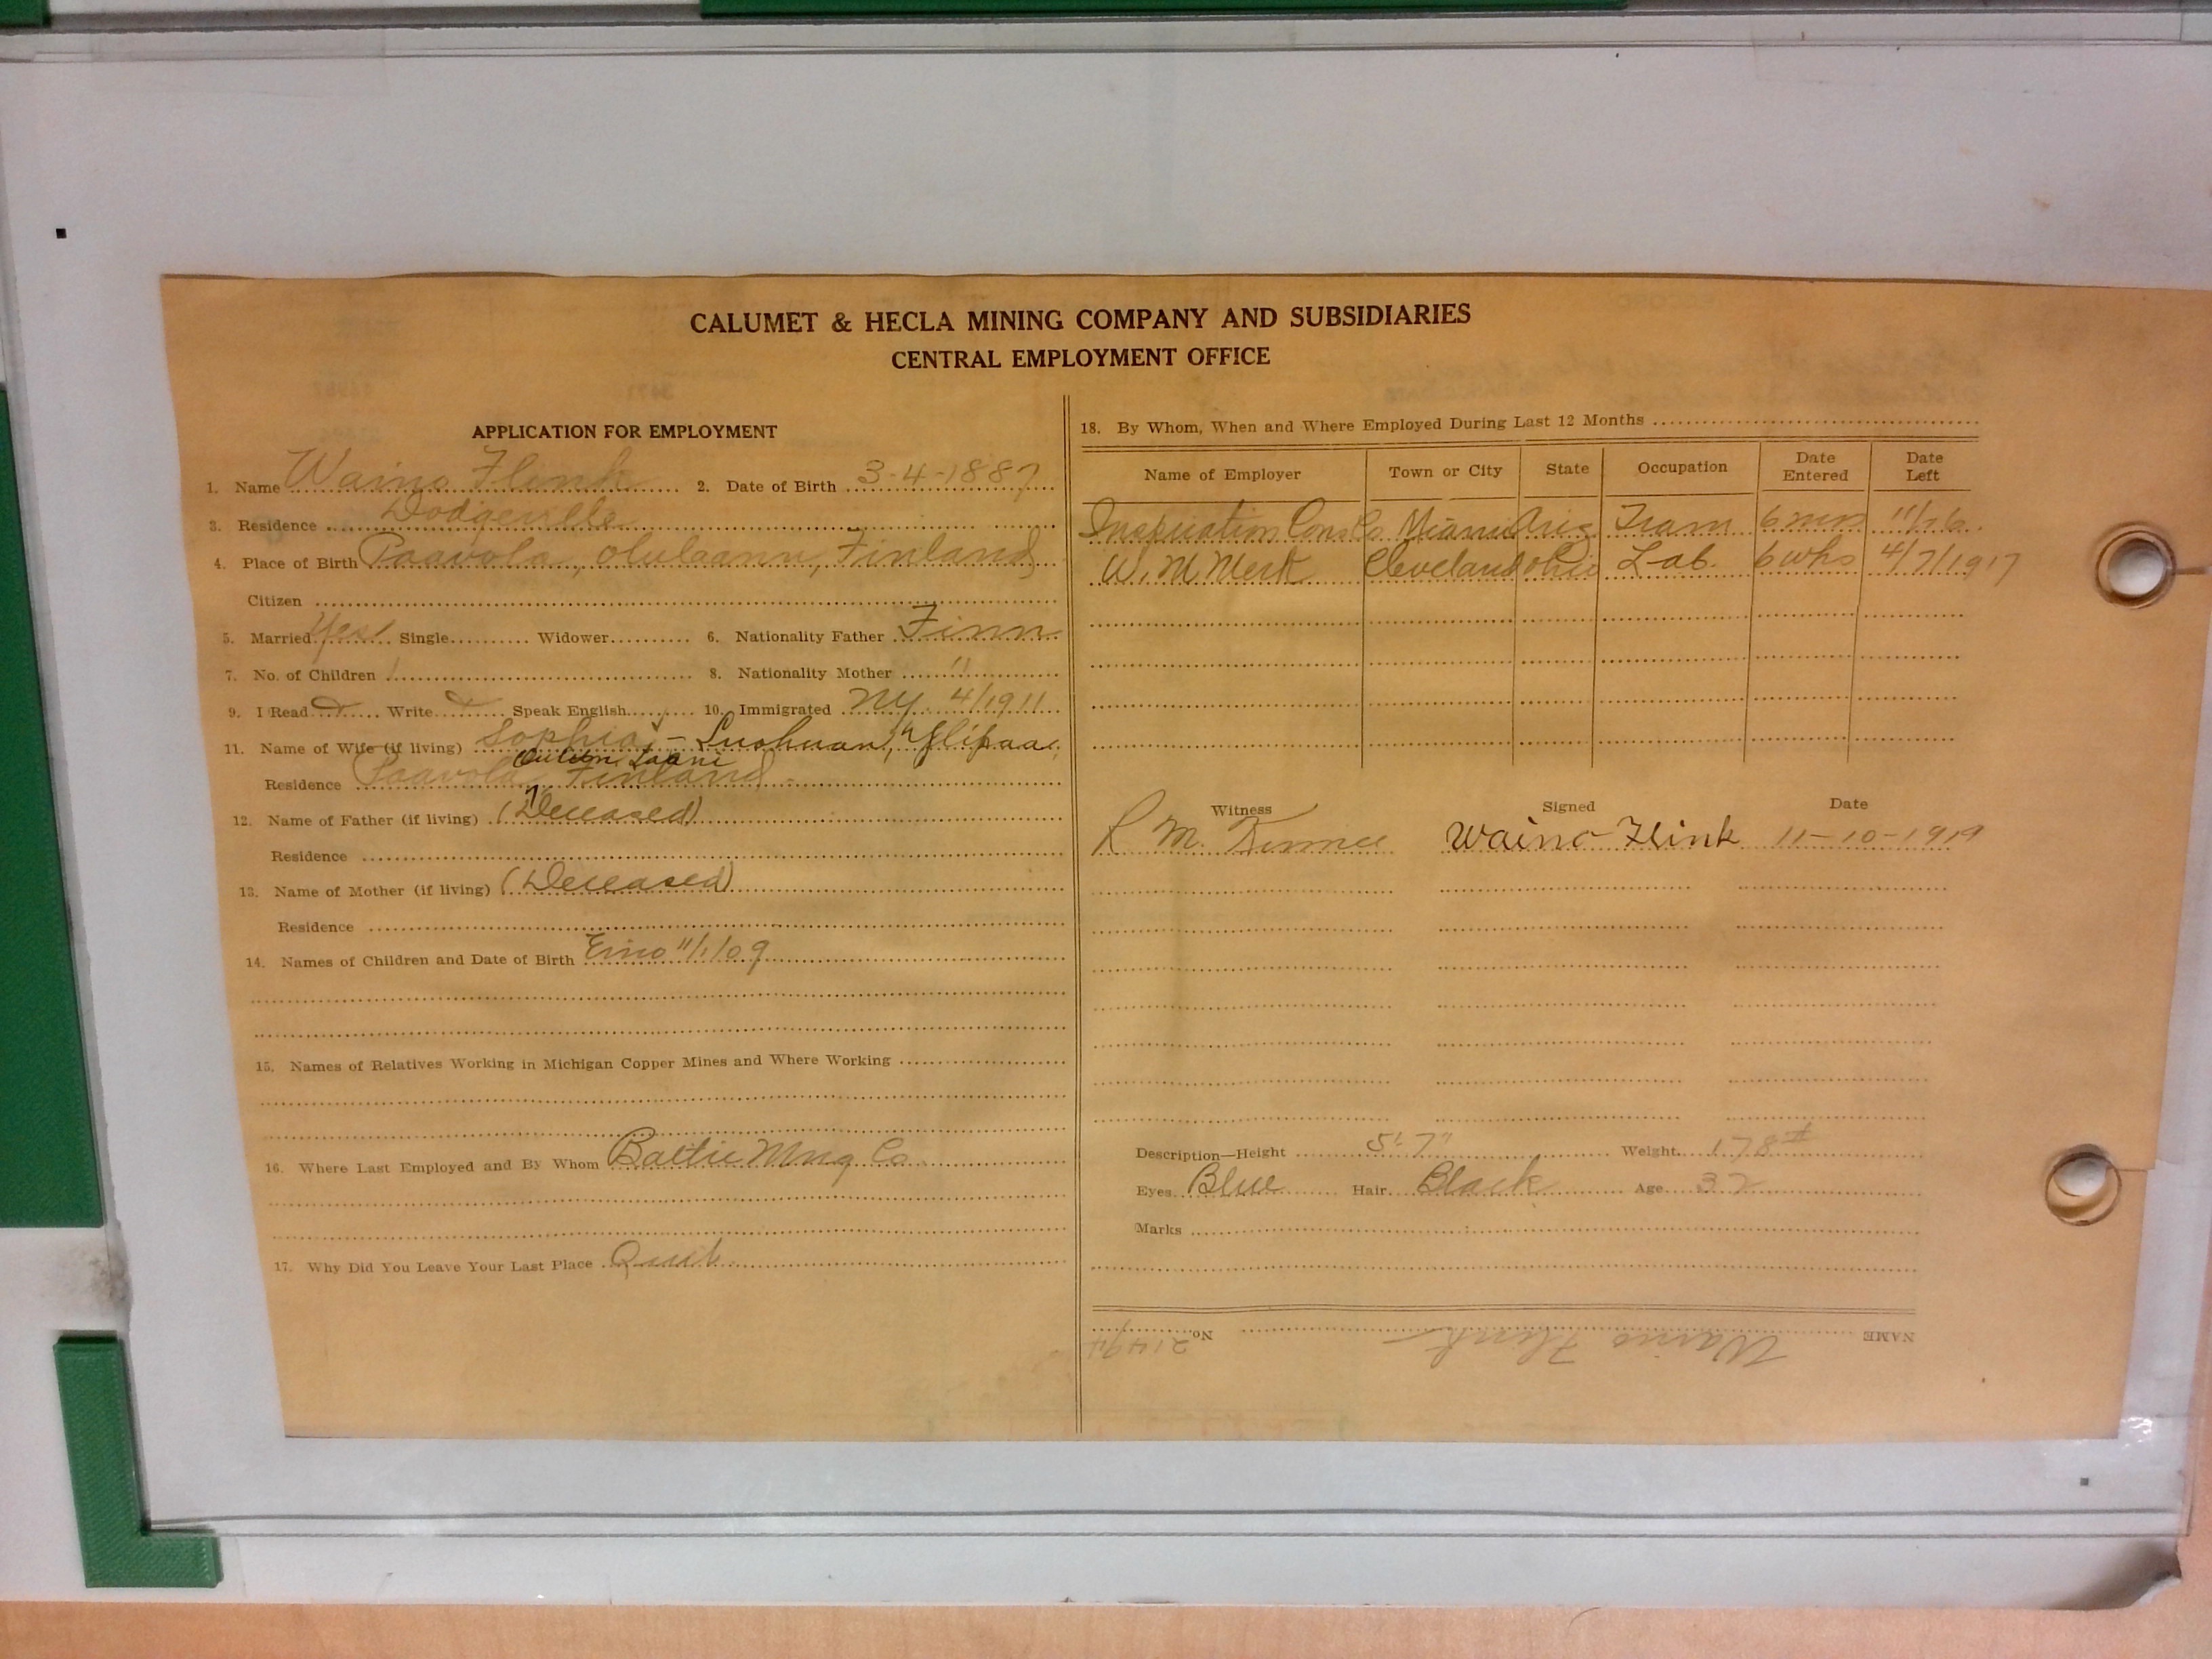 CALUMET & HECLA MINING COMPANY AND SUBSIDIARIES
CENTRAL EMPLOYMENT OFFICE
APPLICATION FOR EMPLOYMENT
1. Name Waino Flink 2. Date of Birth 3-4-1887
3. Residence Dodgeville
4. Place of Birth Paavola, Oululaann, Finland
Citizen
5. Married Yes Single Widower 6. Nationality Father Finn
7. No. of Children 1 8. Nationality Mother "
9. I Read Write Speak English 10. Immigrated NY 4/1911
11. Name of Wife (if living) Sophia -
Oulun Laani
Residence Paavola Finland
12. Name of Father (if living) (Deceased)
Residence
13. Name of Mother (if living) (Deceased)
Residence
14. Names of Children and Date of Birth Eino 11/1/09
15. Names of Relatives Working in Michigan Copper Mines and Where Working
16. Where Last Employed and By Whom Baltic Mng Co
17. Why Did You Leave Your Last Place Quit
18. By Whom, When and Where Employed During Last 12 Months
Name of Employer Town or City State Occupation Date Entered Date Left
Inspiration Cons Co Miami Ariz Tram 6 mos
W. M Merk Cleveland Ohio Lab. 6 wks 4/7/1917
Witness Signed Date
R M. Waino Flink 11-10-1919
Description—Height 5' 7" Weight 178#
Eyes Blue Hair Black Age 32
Marks
NAME Waino Flink No.